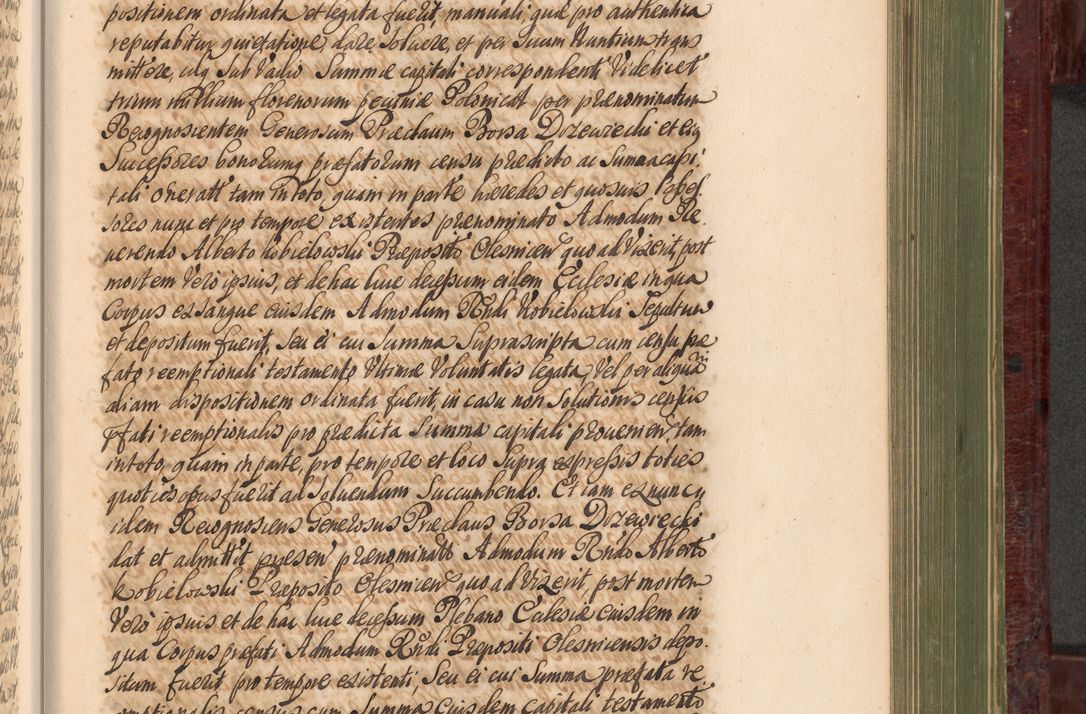 positionem ordinata et legata fuerit manuali quæ pro authentica
reputabitur quietatione dare soluere, et per suum Nuntium trans
mittere, idq sub Vadio Summæ capitali correspondenti Videlicet
trium Millium florenorum pecuniæ Polonicat per prænominatum
Recognoscentem Generosum Præclaum Borsa Drzewiecki et eiq
Successores bonorumq præfatorum censu prædicto ac Summa capi:
tali oneratt tam in toto, quam in parte hæredes et quosuis Posses
sores nunc et pro tempore existentes prænominato Admodum Re
uerendo Alberto Kobielowski Præposito Olesnicen quo ad Vixerit, post
mortem Vero ipsius, et de hac luce decessum eidem Ecclesiæ in qua
Corpus exsangue eiusdem Admodum Rndi Kobielowski Sepultum
et depositum fuerit, seu ei cui Summa Suprascripta cum censu præ
fato reemptionali testamento Ultimæ Voluntatis legata, Vel per aliqua
aliam dispositionem ordinata fuerit, in casu non solutionis census
pfati reemptionalis pro prædicta Summa capitali prouenien, tam
in toto, quam in parte, pro tempore et loco supra expressis toties
quoties opus fuerit ad soluendum succumbendo. Etiam ex nunc
idem Recognoscens Generosus Præclaus Borsa Drzewiecki
dat et admittit præsen prænominatt Admodum Rndo Alberto
Kobielowski Præposito Olesnicen quo ad Vixerit, post mortem
Vero ipsius et de hac luce decessum Plebano Ecclesiæ eiusdem in
qua Corpus præfati Admodum Rndi Præpositi Olesnicensis depo.
situm fuerit pro tempore existenti, Seu ei cui Summa præfata re
emptionalis census cum Summa eiusdem capitali testamento